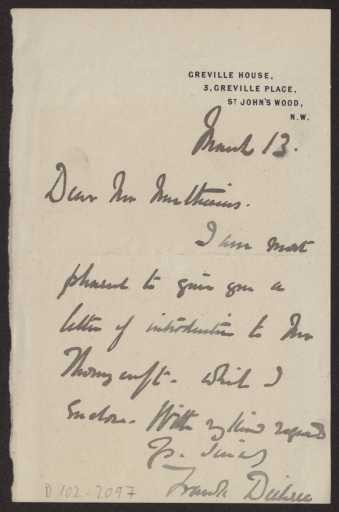 GREVILLE HOUSE,
3, GREVILLE PLACE,
ST JOHN'S WOOD,
N.W.
March 13.
Dear Mr Matthews.
I am most
pleased to give you a
letter of introduction to Mr
Thornycroft - which I
Enclose. With my kind regards
Yrs. Sincly
Frank Dicksee
D 102-2097